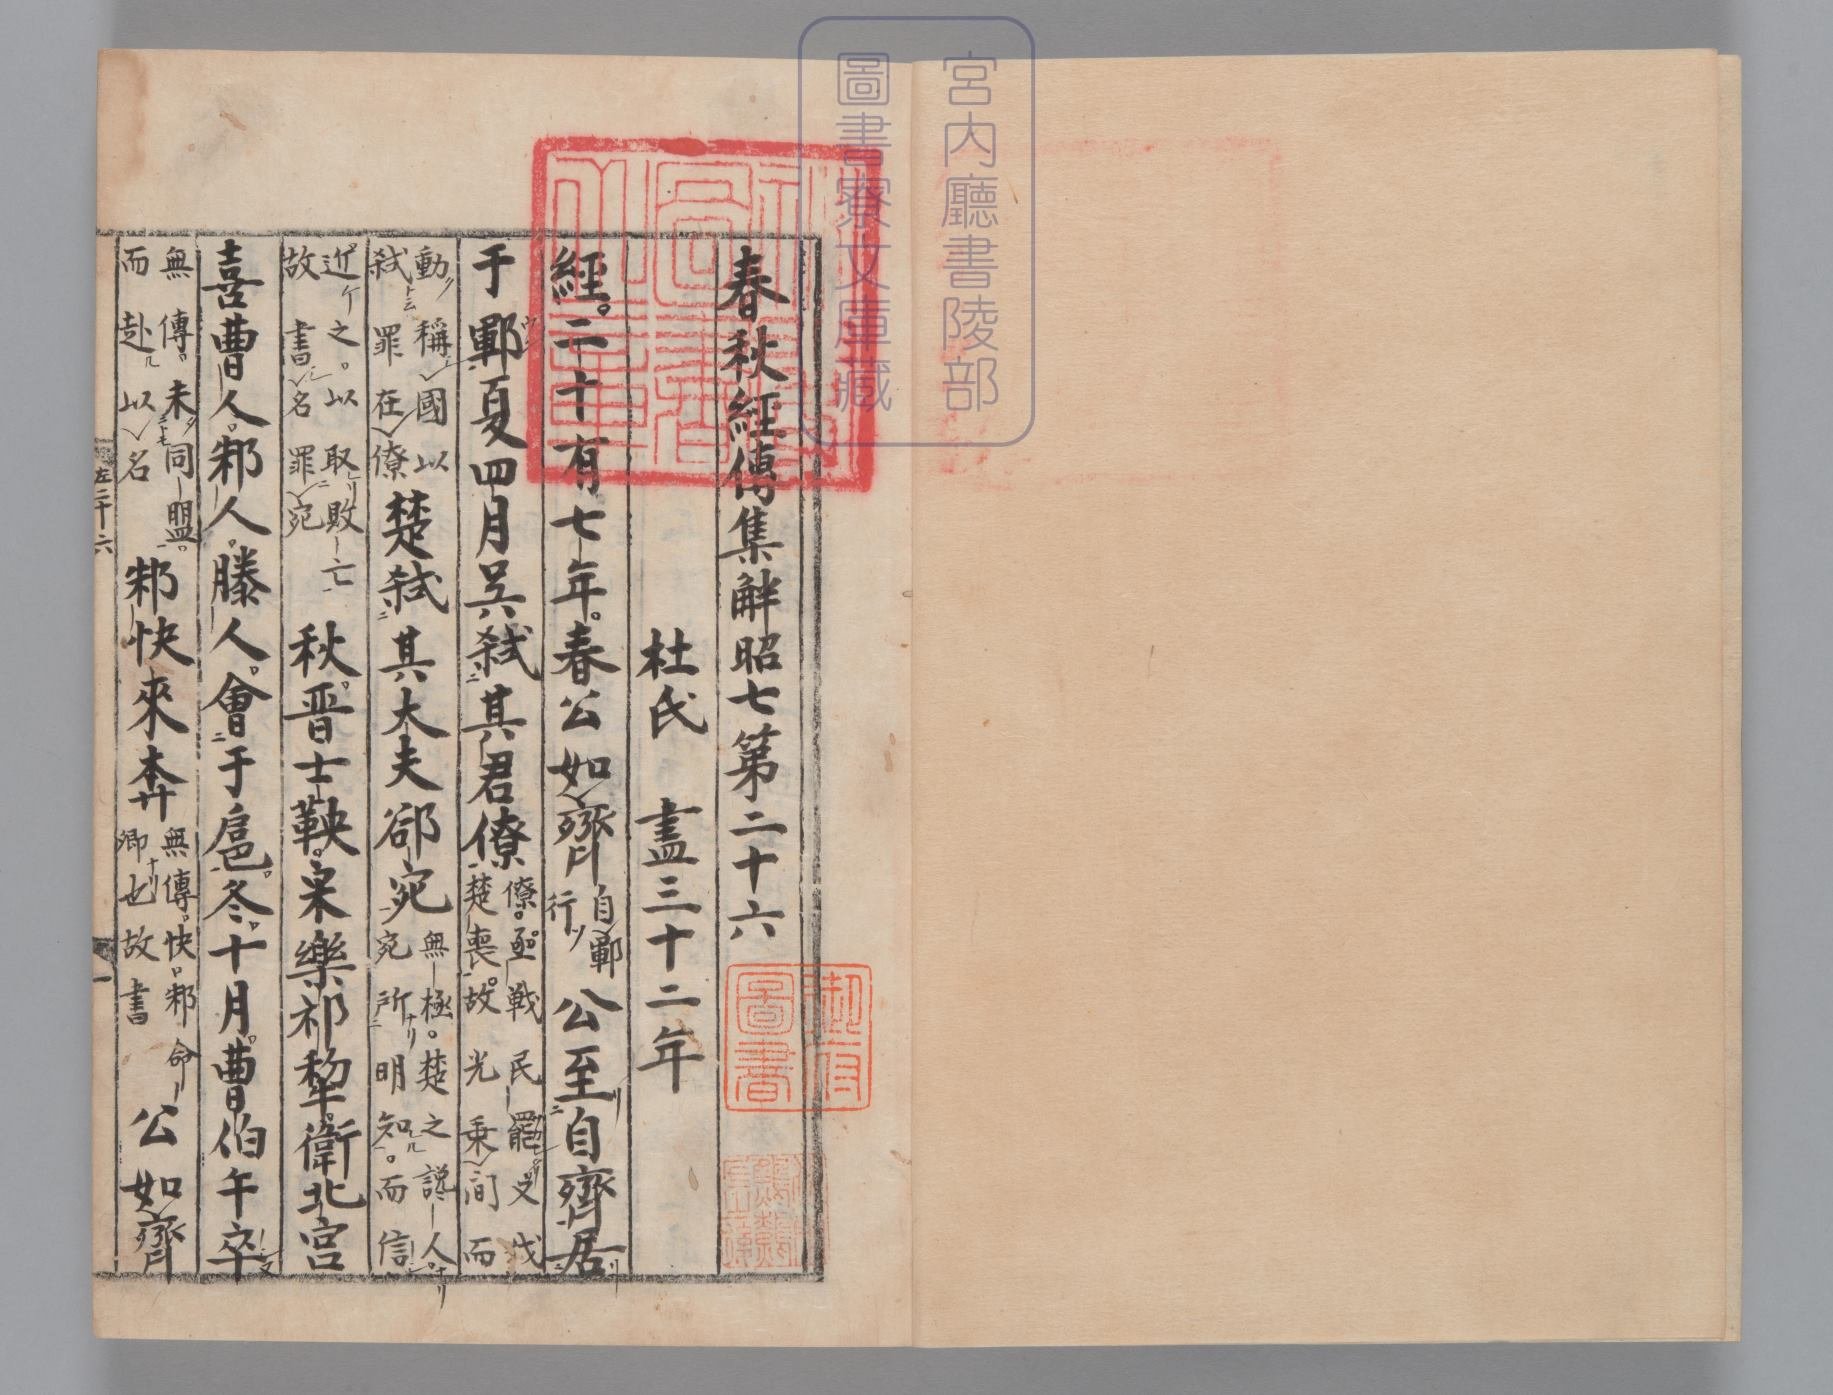 宮内廳書陵部
圖書寮文庫藏
春秋經傳集解昭七第二十六
杜氏 盡三十二年
經二十有七年春公如齊自鄆行公至自齊居
于鄆夏四月吳弒其君僚僚亟戰民罷又伐楚喪故光乗間而
動稱國以弒罪在僚楚弒其大夫郤宛無極楚之讒人宛所明知而信
近之以取敗亡故書名罪宛秋晋士鞅宋樂祁犂衛北宮
喜曹人邾人滕人會于扈冬十月曹伯午卒
無傳未同盟而赴以名邾快來奔無傳快邾命卿也故書公如齊
左二十六
一
御府圖書